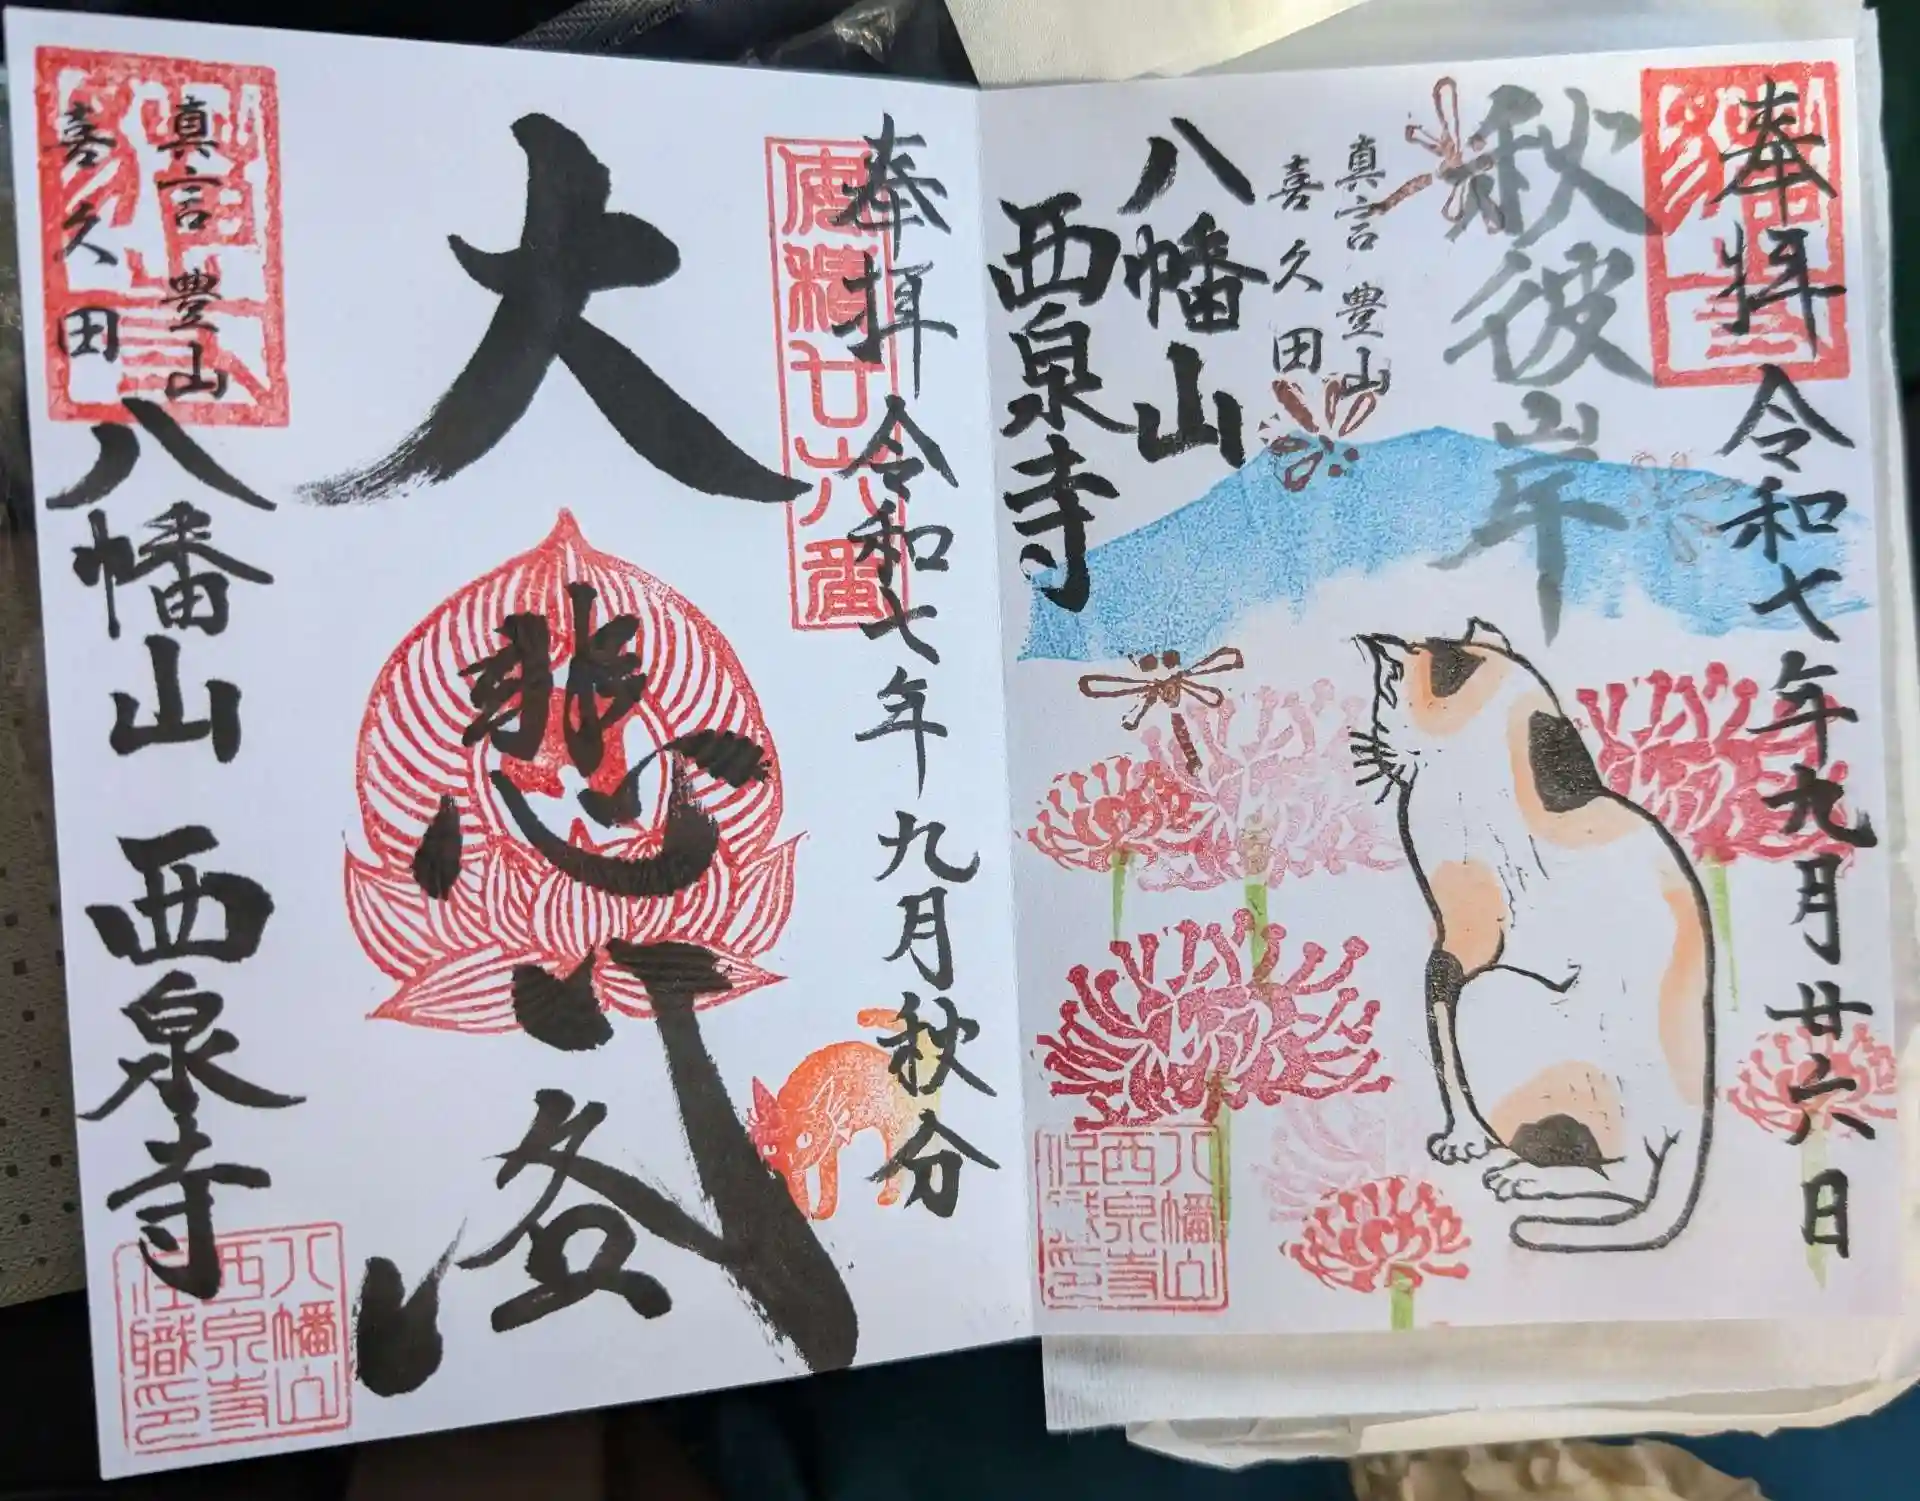 奉拝
令和七年九月廿六日
秋彼岸
真言 豊山
喜久田
八幡山
西泉寺
八幡山
西泉寺
住職印
奉拝
令和七年九月秋分
廿六番
大悲
真言 豊山
喜久田
八幡山
西泉寺
八幡山
西泉寺
住職印